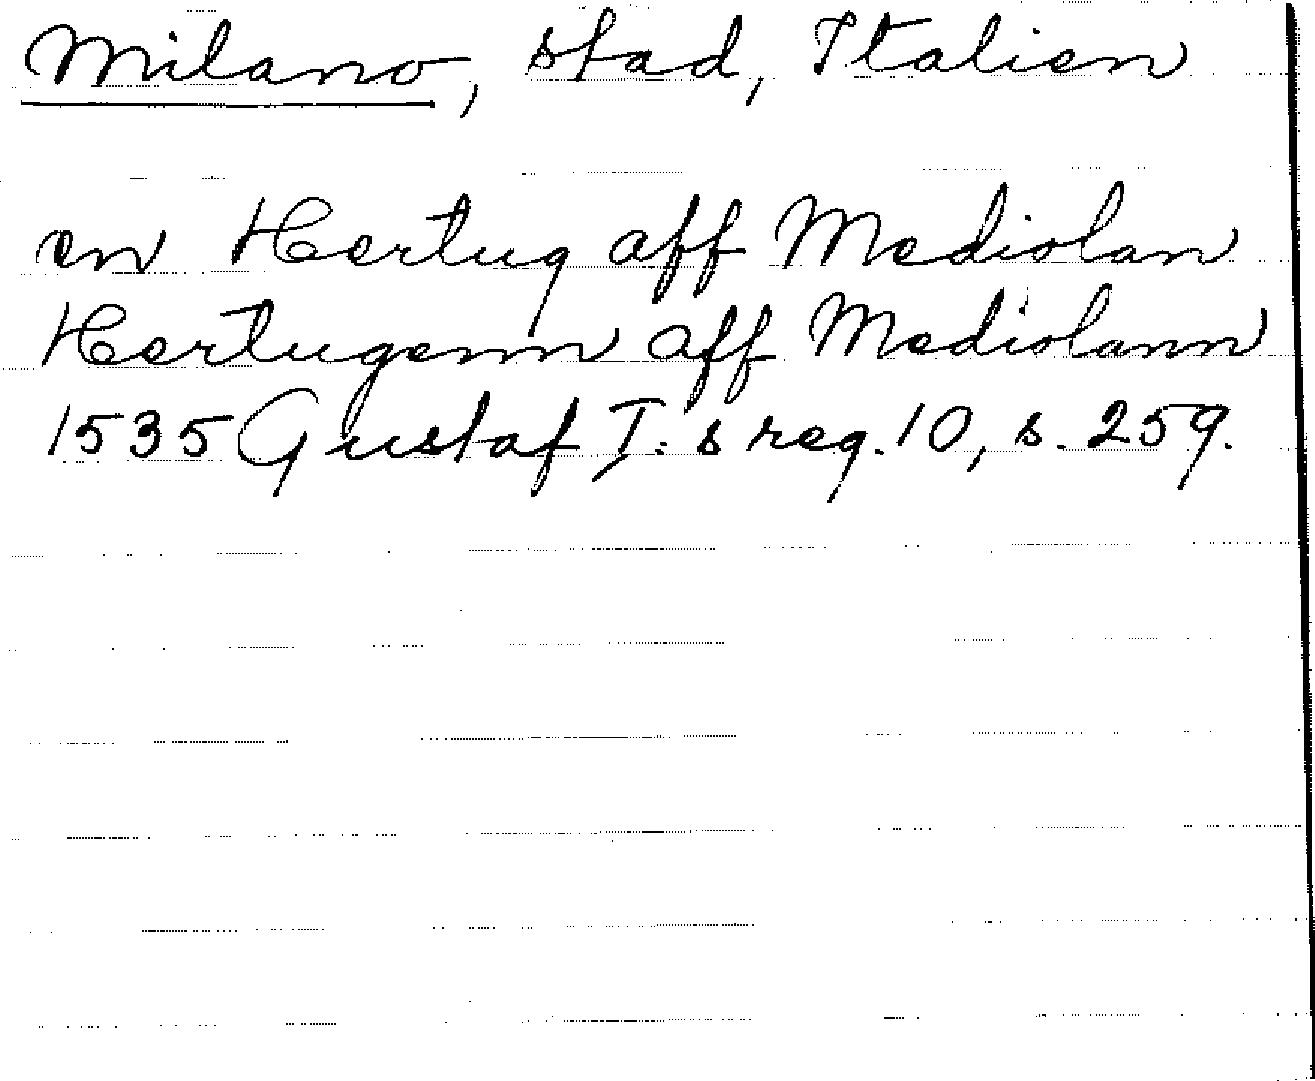 Milano, stad, Italien
en Hertug aff Mediolan
Hertugenn aff Mediolann
1535 Gustaf I:s reg. 10, s. 259.